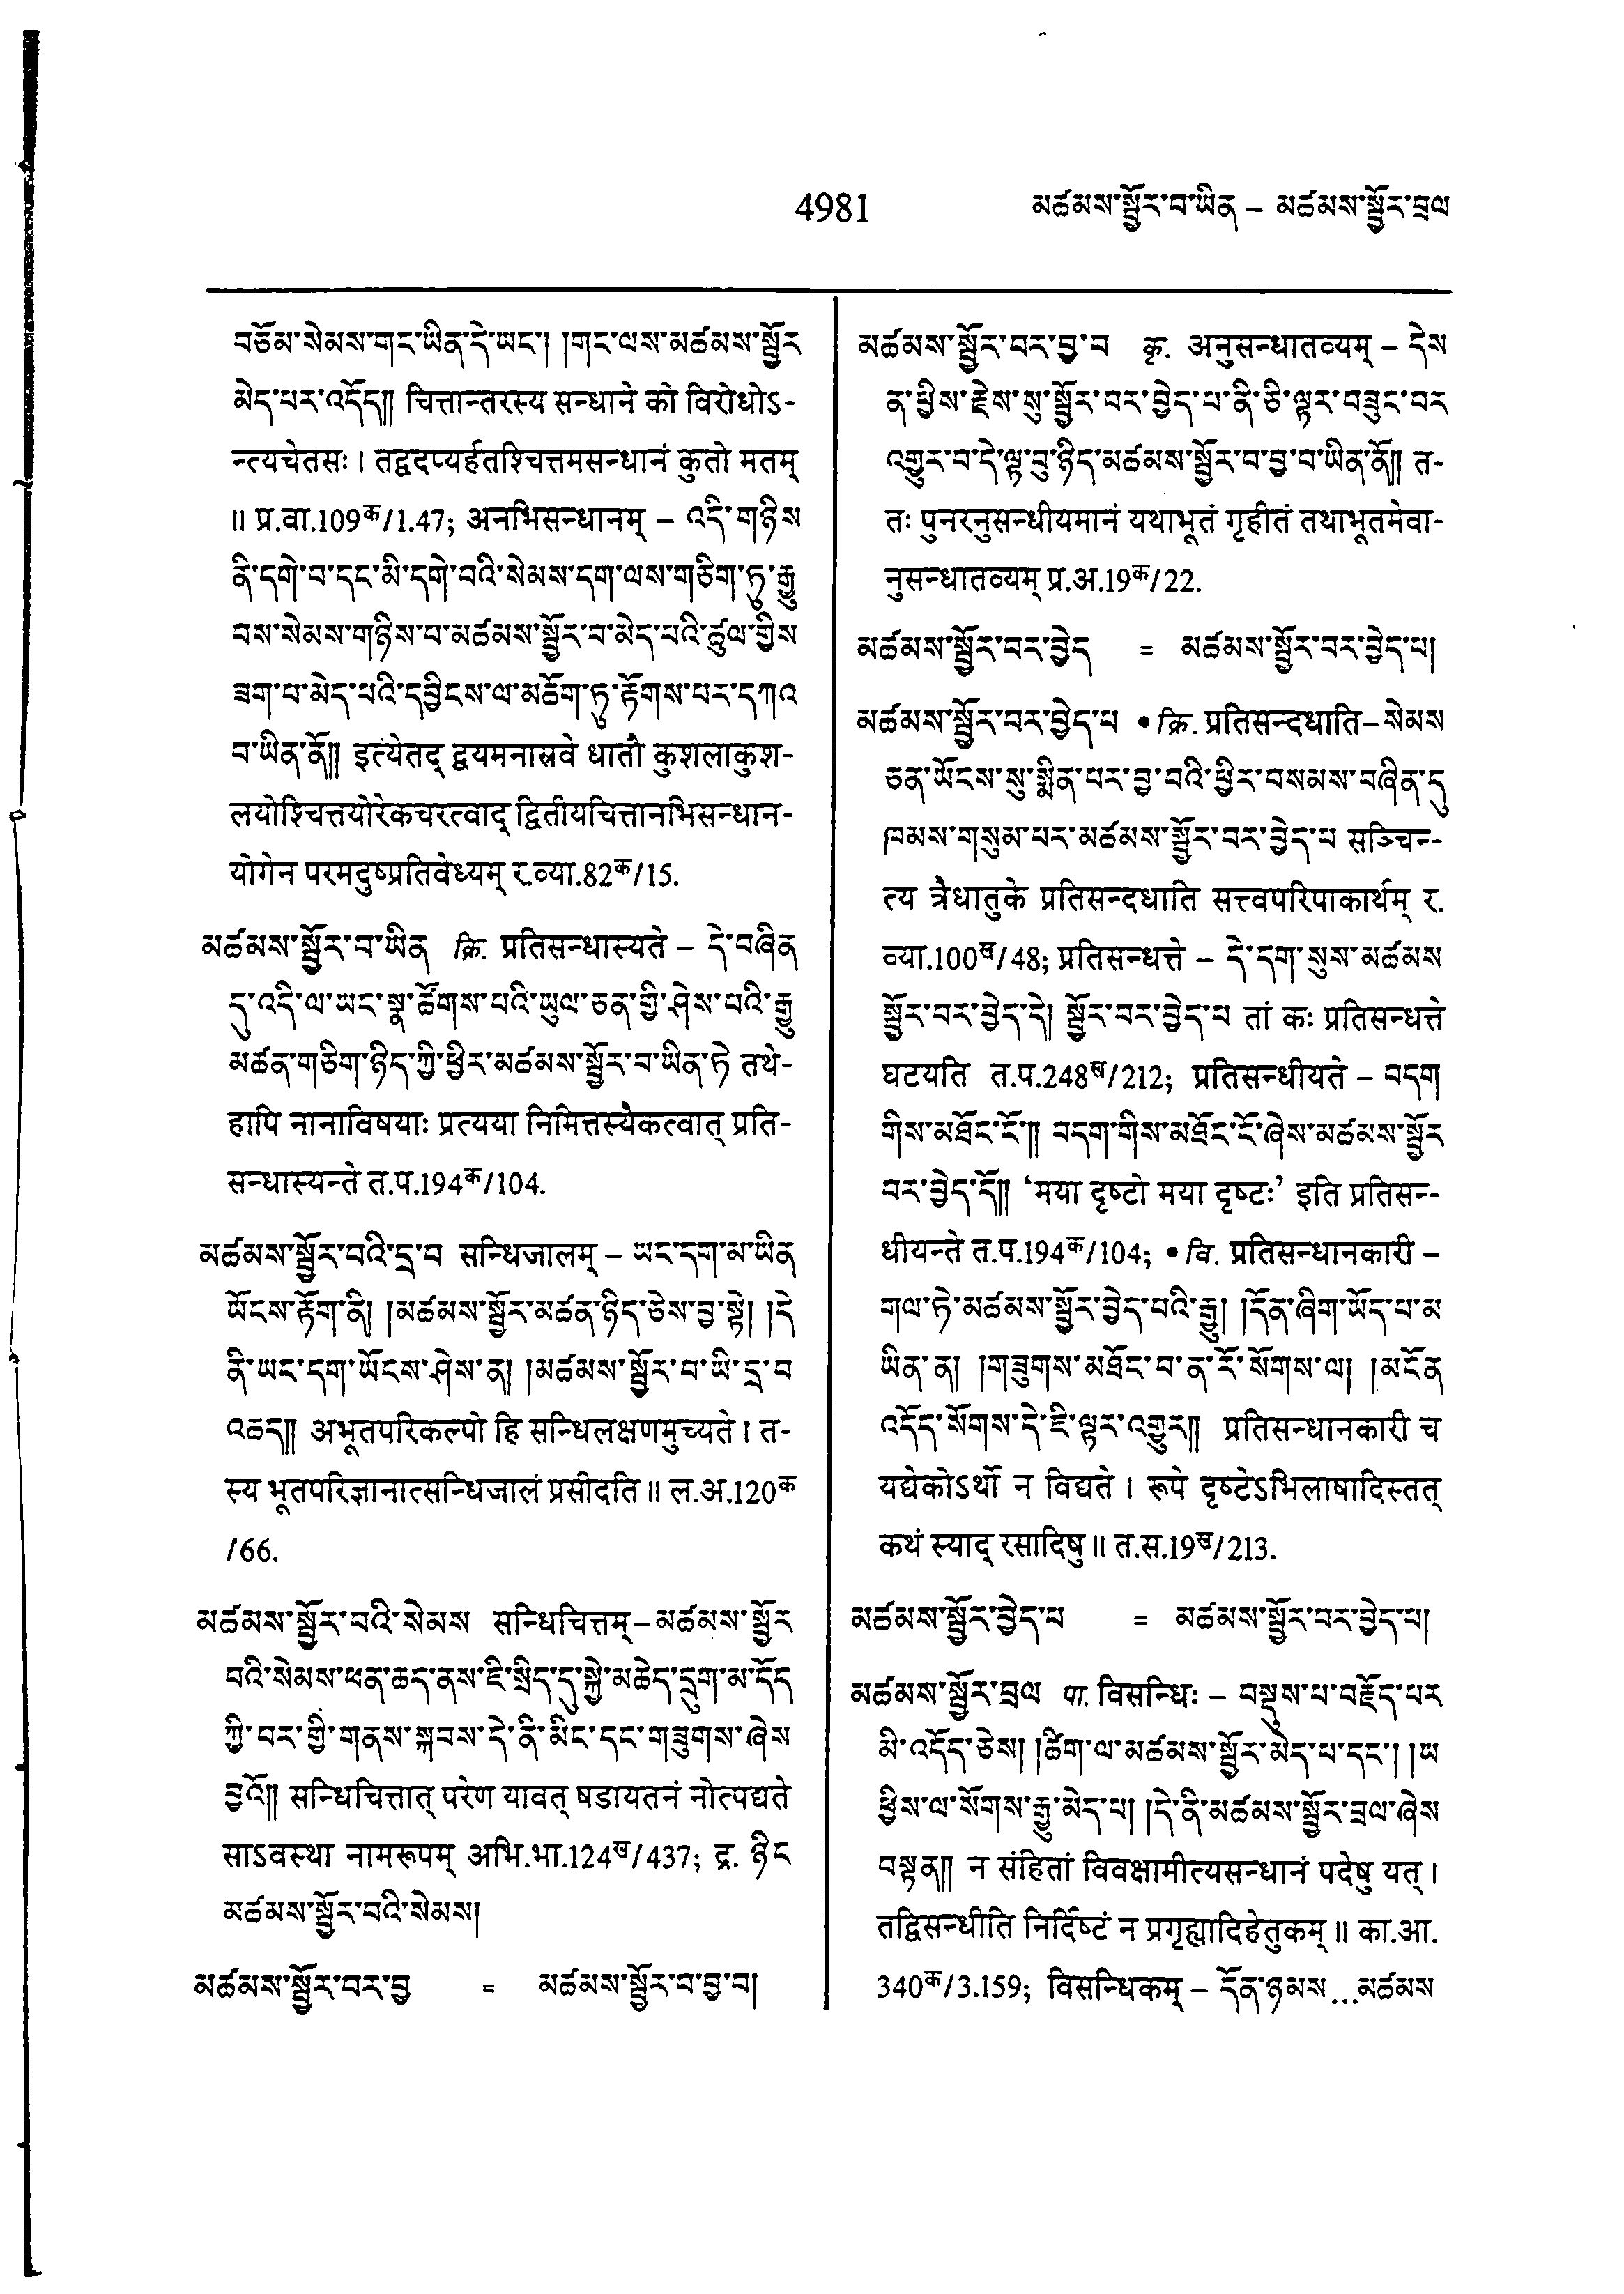 4981 མཚམས་སྦྱོར་བ་ཡིན – མཚམས་སྦྱོར་བྲལ
བཅོམ་སེམས་གང་ཡིན་དེ་ཡང་། །གང་ལས་མཚམས་སྦྱོར
མེད་པར་འདོད༎ चित्तान्तरस्य सन्धाने को विरोधोऽ-
न्त्यचेतसः। तद्वदप्यर्हतश्चित्तमसन्धानं कुतो मतम्
॥ प्र.वा.109क/1.47; अनभिसन्धानम् – འདི་གཉིས
ནི་དགེ་བ་དང་མི་དགེ་བའི་སེམས་དག་ལས་གཅིག་ཏུ་རྒྱུ
བས་སེམས་གཉིས་པ་མཚམས་སྦྱོར་བ་མེད་པའི་ཚུལ་གྱིས
ཟག་པ་མེད་པའི་དབྱིངས་ལ་མཆོག་ཏུ་རྟོགས་པར་དཀའ
བ་ཡིན་ནོ༎ इत्येतद् द्वयमनास्रवे धातौ कुशलाकुश-
लयोश्चित्तयोरेकचरत्वाद् द्वितीयचित्तानभिसन्धान-
योगेन परमदुष्प्रतिवेध्यम् र.व्या.82क/15.
མཚམས་སྦྱོར་བ་ཡིན क्रि. प्रतिसन्धास्यते – དེ་བཞིན
དུ་འདི་ལ་ཡང་སྣ་ཚོགས་པའི་ཡུལ་ཅན་གྱི་ཤེས་པའི་རྒྱུ
མཚན་གཅིག་ཉིད་ཀྱི་ཕྱིར་མཚམས་སྦྱོར་བ་ཡིན་ཏེ तथे-
हापि नानाविषयाः प्रत्यया निमित्तस्यैकत्वात् प्रति-
सन्धास्यन्ते त.प.194क/104.
མཚམས་སྦྱོར་བའི་དྲ་བ सन्धिजालम् – ཡང་དག་མ་ཡིན
ཡོངས་རྟོག་ནི། །མཚམས་སྦྱོར་མཚན་ཉིད་ཅེས་བྱ་སྟེ། །དེ
ནི་ཡང་དག་ཡོངས་ཤེས་ན། །མཚམས་སྦྱོར་བ་ཡི་དྲ་བ
འཆད༎ अभूतपरिकल्पो हि सन्धिलक्षणमुच्यते। त-
स्य भूतपरिज्ञानात्सन्धिजालं प्रसीदति॥ ल.अ.120क
/66.
མཚམས་སྦྱོར་བའི་སེམས सन्धिचित्तम् – མཚམས་སྦྱོར
བའི་སེམས་ཕན་ཆད་ནས་ཇི་སྲིད་དུ་སྐྱེ་མཆེད་དྲུག་མ་དོད
ཀྱི་བར་གྱི་གནས་སྐབས་དེ་ནི་མིང་དང་གཟུགས་ཞེས
བྱའོ༎ सन्धिचित्तात् परेण यावत् षडायतनं नोत्पद्यते
साऽवस्था नामरूपम् अभि.भा.124ख/437; द्र. ཉིང
མཚམས་སྦྱོར་བའི་སེམས།
མཚམས་སྦྱོར་བར་བྱ = མཚམས་སྦྱོར་བ་བྱ་བ།
མཚམས་སྦྱོར་བར་བྱ་བ कृ. अनुसन्धातव्यम् – དེས
ན་ཕྱིས་རྗེས་སུ་སྦྱོར་བར་བྱེད་པ་ནི་ཅི་ལྟར་བཟུང་བར
འགྱུར་བ་དེ་ལྟ་བུ་ཉིད་མཚམས་སྦྱོར་བ་བྱ་བ་ཡིན་ནོ༎ त-
तः पुनरनुसन्धीयमानं यथाभूतं गृहीतं तथाभूतमेवा-
नुसन्धातव्यम् प्र.अ.19क/22.
མཚམས་སྦྱོར་བར་བྱེད = མཚམས་སྦྱོར་བར་བྱེད་པ།
མཚམས་སྦྱོར་བར་བྱེད་པ • क्रि. प्रतिसन्दधाति – སེམས
ཅན་ཡོངས་སུ་སྨིན་པར་བྱ་བའི་ཕྱིར་བསམས་བཞིན་དུ
ཁམས་གསུམ་པར་མཚམས་སྦྱོར་བར་བྱེད་པ सञ्चिन-
त्य त्रैधातुके प्रतिसन्दधाति सत्त्वपरिपाकार्थम् र.
व्या.100ख/48; प्रतिसन्धत्ते – དེ་དག་སུས་མཚམས
སྦྱོར་བར་བྱེད་དེ། སྦྱོར་བར་བྱེད་པ तां कः प्रतिसन्धत्ते
घटयति त.प.248ख/212; प्रतिसन्धीयते – བདག
གིས་མཐོང་ངོ་༎ བདག་གིས་མཐོང་ངོ་ཞེས་མཚམས་སྦྱོར
བར་བྱེད་དོ༎ ‘मया दृष्टो मया दृष्टः’ इति प्रतिसन-
धीयन्ते त.प.194क/104; • वि. प्रतिसन्धानकारी –
གལ་ཏེ་མཚམས་སྦྱོར་བྱེད་པའི་རྒྱུ། །དོན་ཞིག་ཡོད་པ་མ
ཡིན་ན། །གཟུགས་མཐོང་བ་ན་རོ་སོགས་ལ། །མངོན
འདོད་སོགས་དེ་ཇི་ལྟར་འགྱུར༎ प्रतिसन्धानकारी च
यद्येकोऽर्थो न विद्यते। रूपे दृष्टेऽभिलाषादिस्तत्
कथं स्याद् रसादिषु॥ त.स.19ख/213.
མཚམས་སྦྱོར་བྱེད་པ = མཚམས་སྦྱོར་བར་བྱེད་པ།
མཚམས་སྦྱོར་བྲལ पा. विसन्धिः – བསྡུས་པ་བརྗོད་པར
མི་འདོད་ཅེས། །ཚིག་ལ་མཚམས་སྦྱོར་མེད་པ་དང་། །ཡ
ཕྱིས་ལ་སོགས་རྒྱུ་མེད་པ། །དེ་ནི་མཚམས་སྦྱོར་བྲལ་ཞེས
བསྟན༎ न संहितां विवक्षामीत्यसन्धानं पदेषु यत्।
तद्विसन्धीति निर्दिष्टं न प्रगृह्यादिहेतुकम्॥ का.आ.
340क/3.159; विसन्धिकम् – དོན་ཉམས...མཚམས